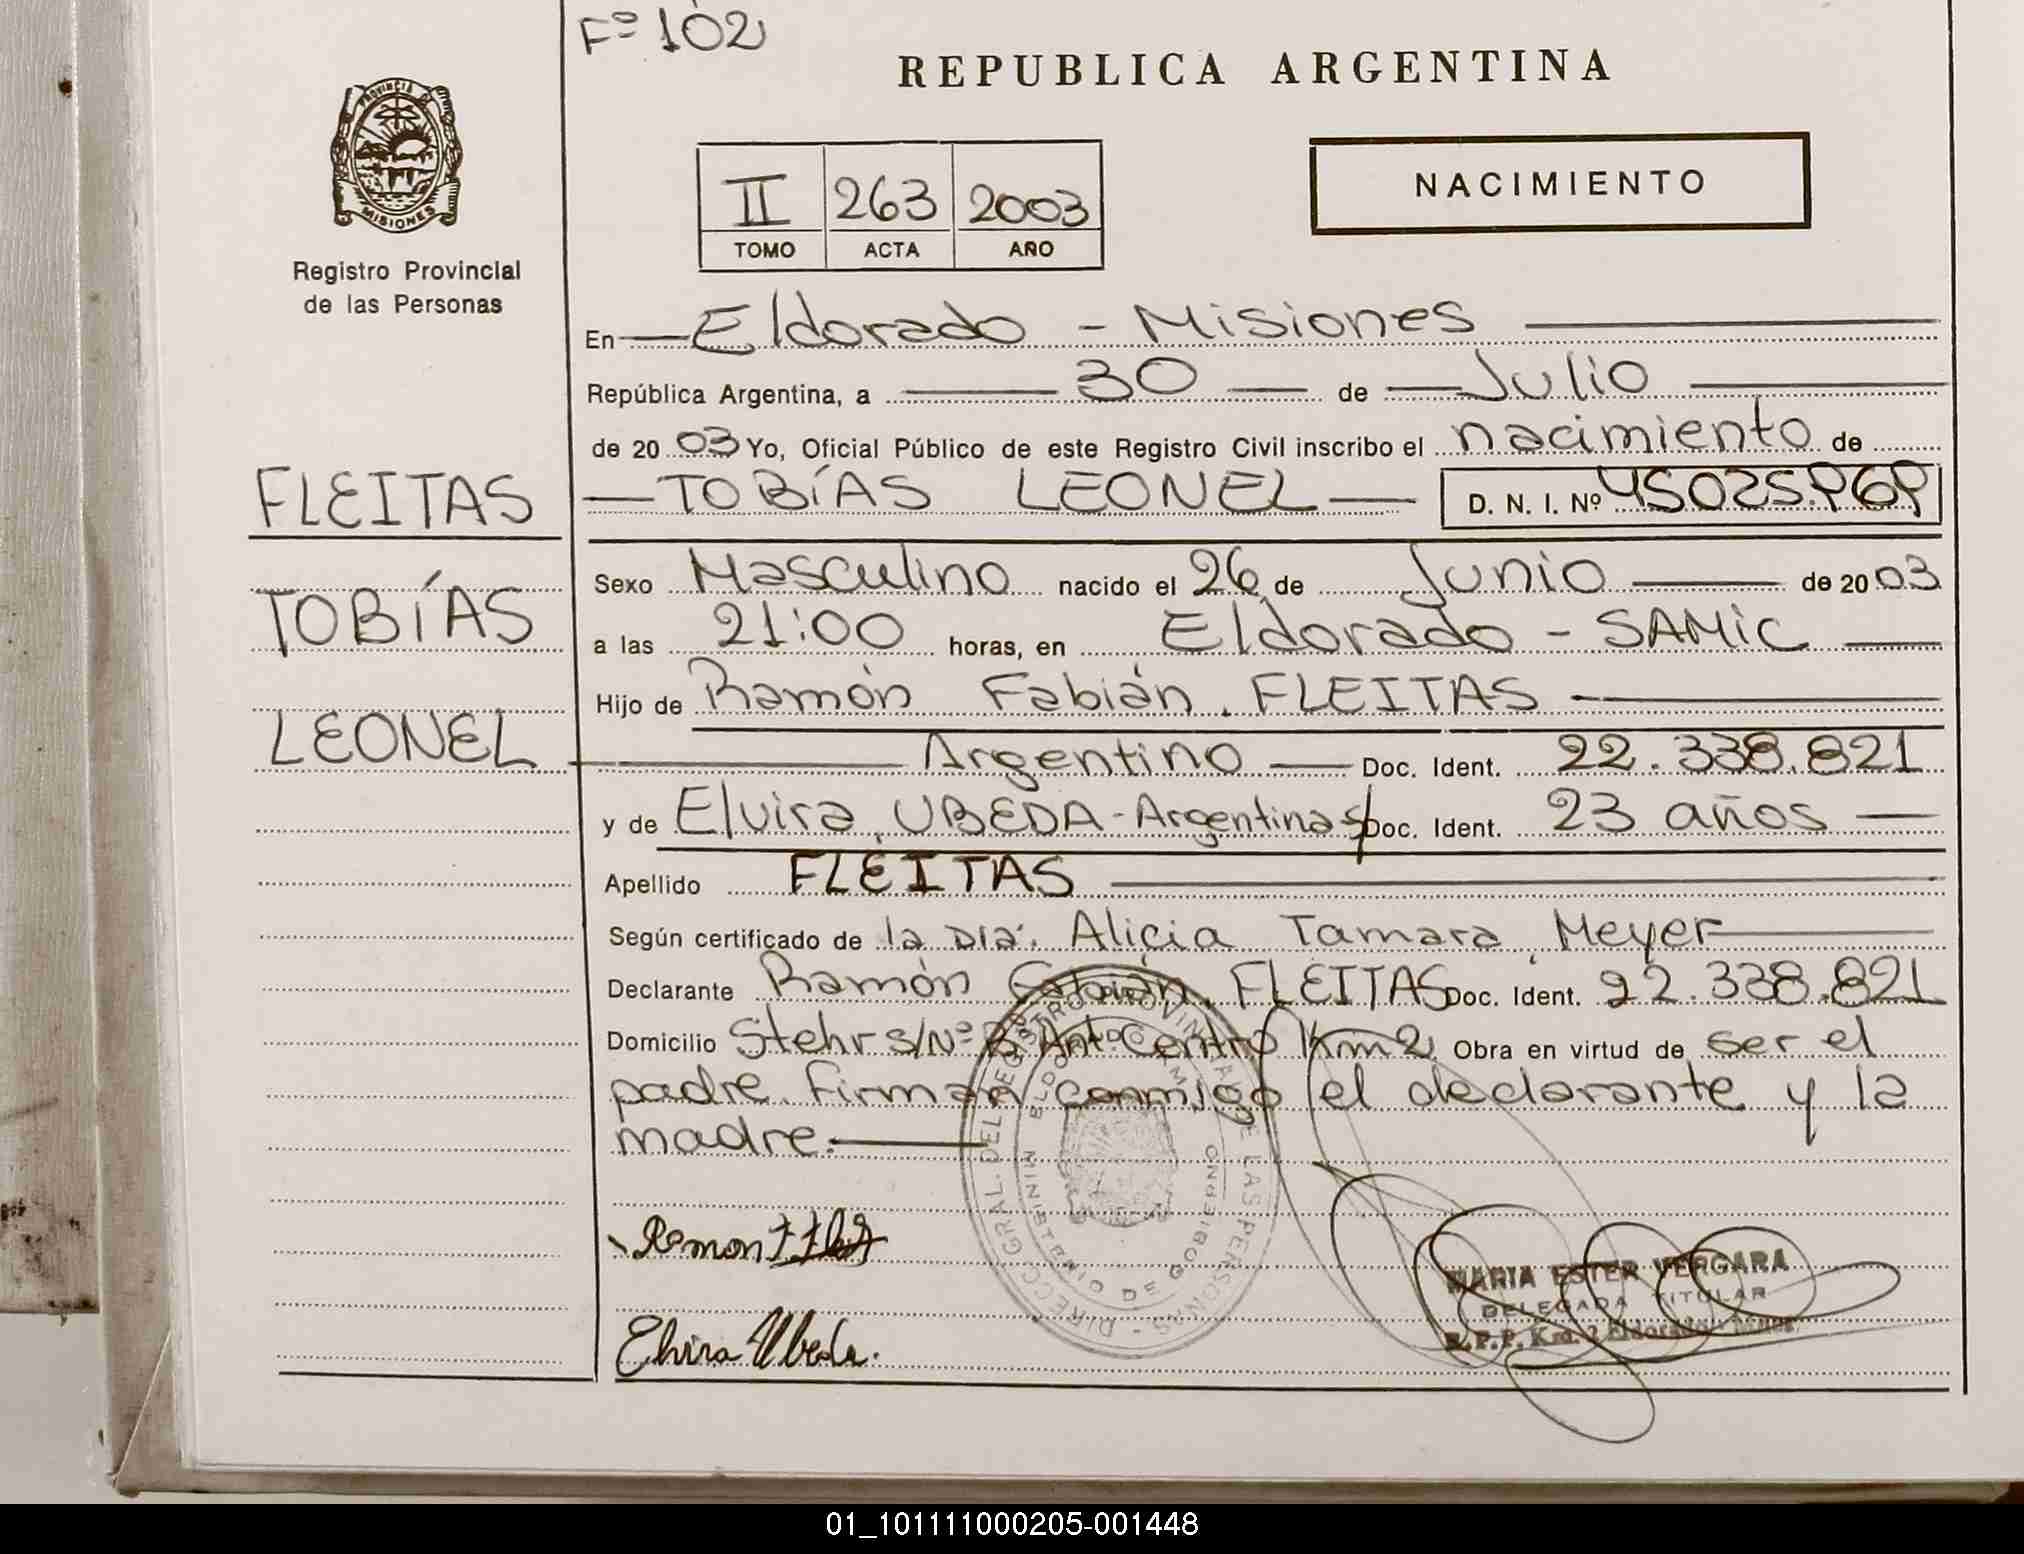 Fº 102
REPUBLICA ARGENTINA
PROVINCIA DE
MISIONES
Registro Provincial
de las Personas
II 263 2003
TOMO ACTA AÑO
NACIMIENTO
En Eldorado - Misiones
República Argentina, a 30 de Julio
de 20 03 Yo, Oficial Público de este Registro Civil inscribo el nacimiento de
FLEITAS
TOBÍAS
LEONEL
TOBÍAS LEONEL D. N. I. Nº 45025.969
Sexo Masculino nacido el 26 de Junio de 20 03
a las 21:00 horas, en Eldorado - SAMIC
Hijo de Ramón Fabián, FLEITAS
Argentino Doc. Ident. 22.338.821
y de Elvira, UBEDA - Argentina s/ Doc. Ident. 23 años
Apellido FLEITAS
Según certificado de la Dra. Alicia Tamara, Meyer
Declarante Ramón Fabián, FLEITAS Doc. Ident. 22.338.821
Domicilio Stehr s/Nº B Ant. Centro Km 2 Obra en virtud de ser el
padre. Firman conmigo el declarante y la
madre.
DIRECC. GRAL. DEL REGISTRO PROVINCIAL DE LAS PERSONAS
MINISTERIO DE GOBIERNO
Ramon F Fleit
Elvira Ubeda.
MARIA ESTER VERGARA
DELEGADA TITULAR
R.P.P. Km. 2 Eldorado - Mnes.
01_101111000205-001448